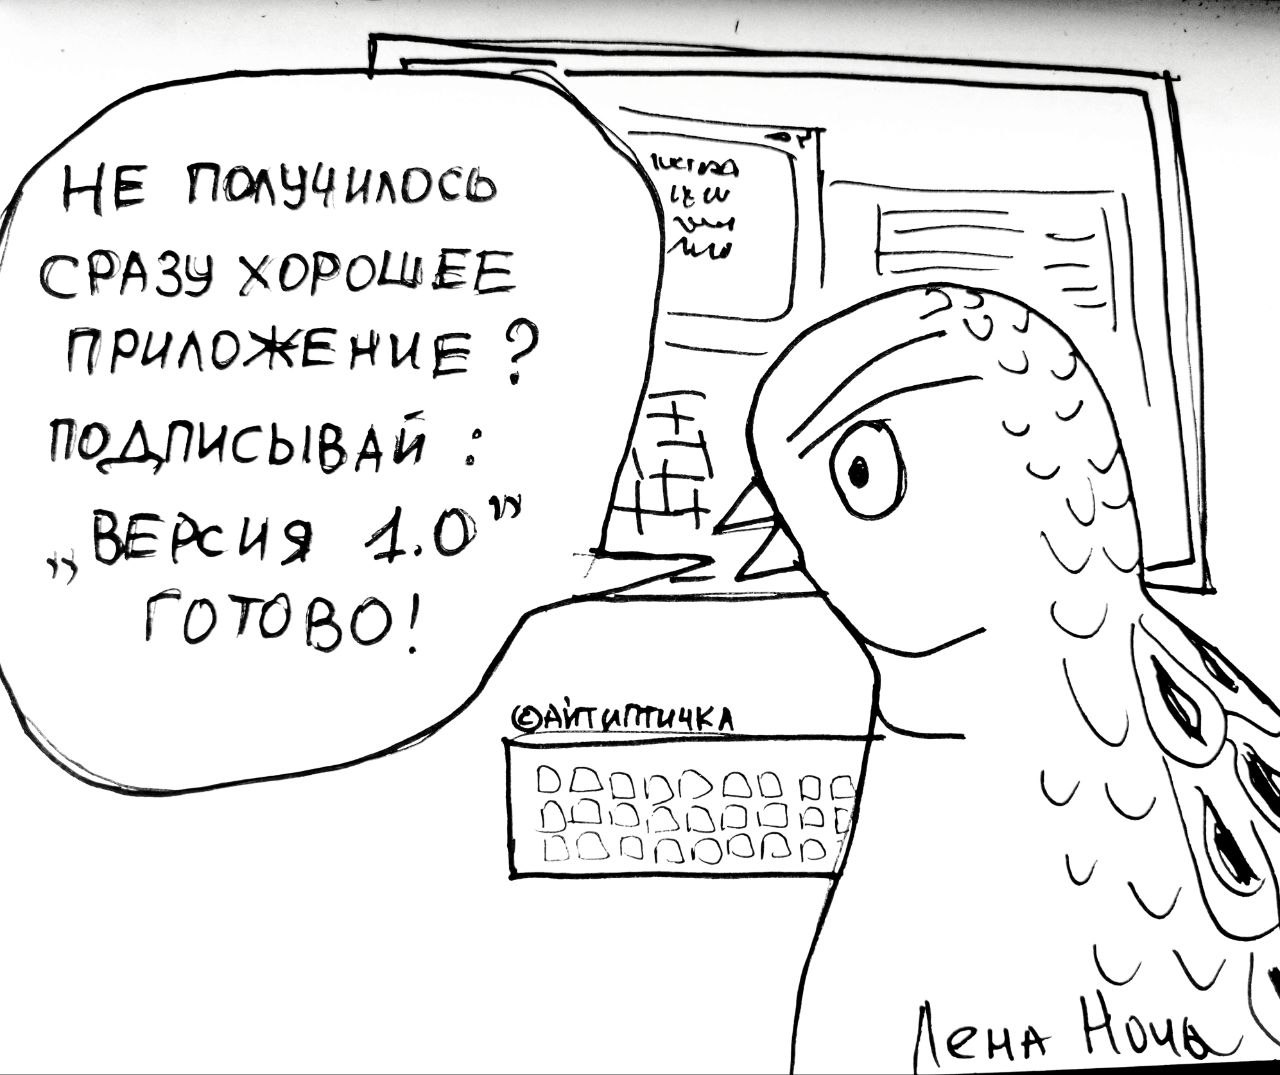 НЕ ПОЛУЧИЛОСЬ
СРАЗУ ХОРОШЕЕ
ПРИЛОЖЕНИЕ ?
ПОДПИСЫВАЙ :
„ВЕРСИЯ 1.0”
ГОТОВО!
©АЙТИПТИЧКА
Лена Ночь